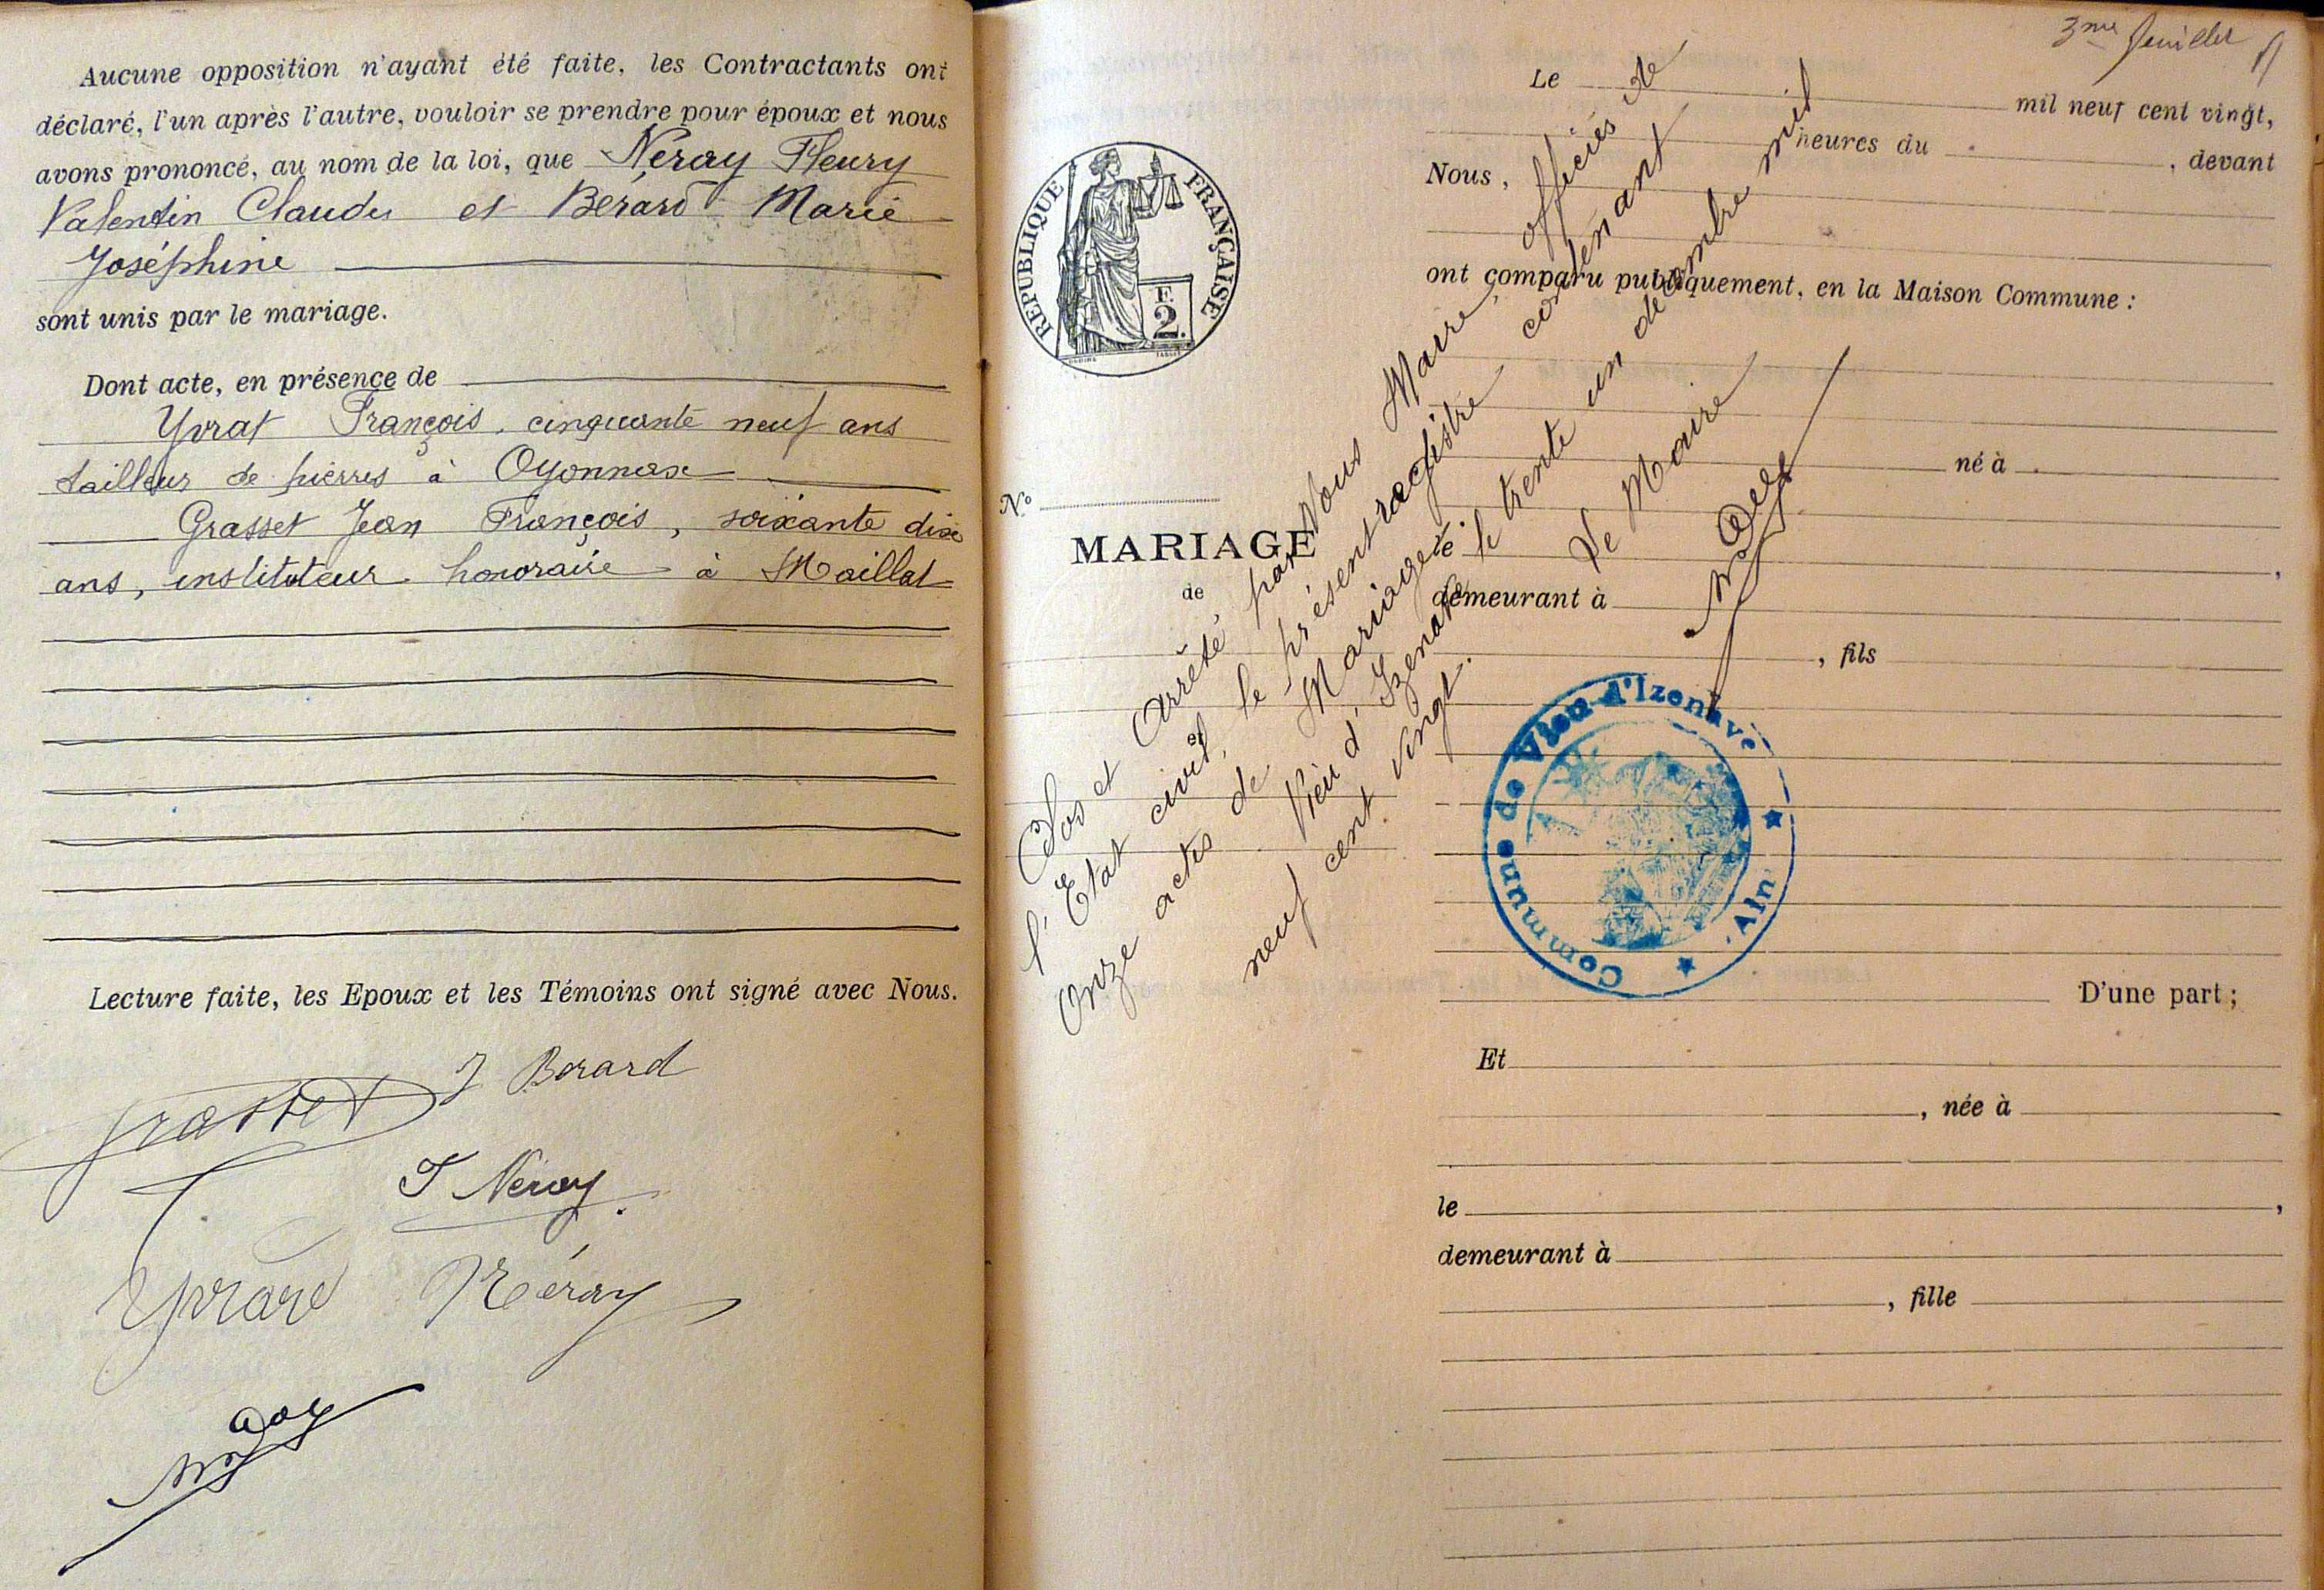 Aucune opposition n'ayant été faite, les Contractants ont
déclaré, l'un après l'autre, vouloir se prendre pour époux et nous
avons prononcé, au nom de la loi, que Néray Fleury
Valentin Claudu et Bérard Marie
Joséphine
sont unis par le mariage.
Dont acte, en présence de
Yvrat François, cinquante neuf ans
tailleur de pierres à Oyonnax
Grasset Jean François, soixante dix
ans, instituteur honoraire à Maillat
Lecture faite, les Epoux et les Témoins ont signé avec Nous.
J Berard
Grasset
F Néray
Yvrard Néray
3me feuillet
Le mil neuf cent vingt,
heures du , devant
Nous,
ont comparu publiquement, en la Maison Commune :
né à
le ,
demeurant à
, fils
D'une part ;
Et
, née à
le ,
demeurant à
, fille
REPUBLIQUE FRANÇAISE
F.
2.
N°
MARIAGE
de
Clos et Arrêté par Nous Maire, officier de
l'Etat civil, le présent registre contenant
onze actes de Mariage.
et Vieu d'Izenave le trente un décembre mil
neuf cent vingt.
Le Maire
Commune de Vieu-d'Izenave
Ain